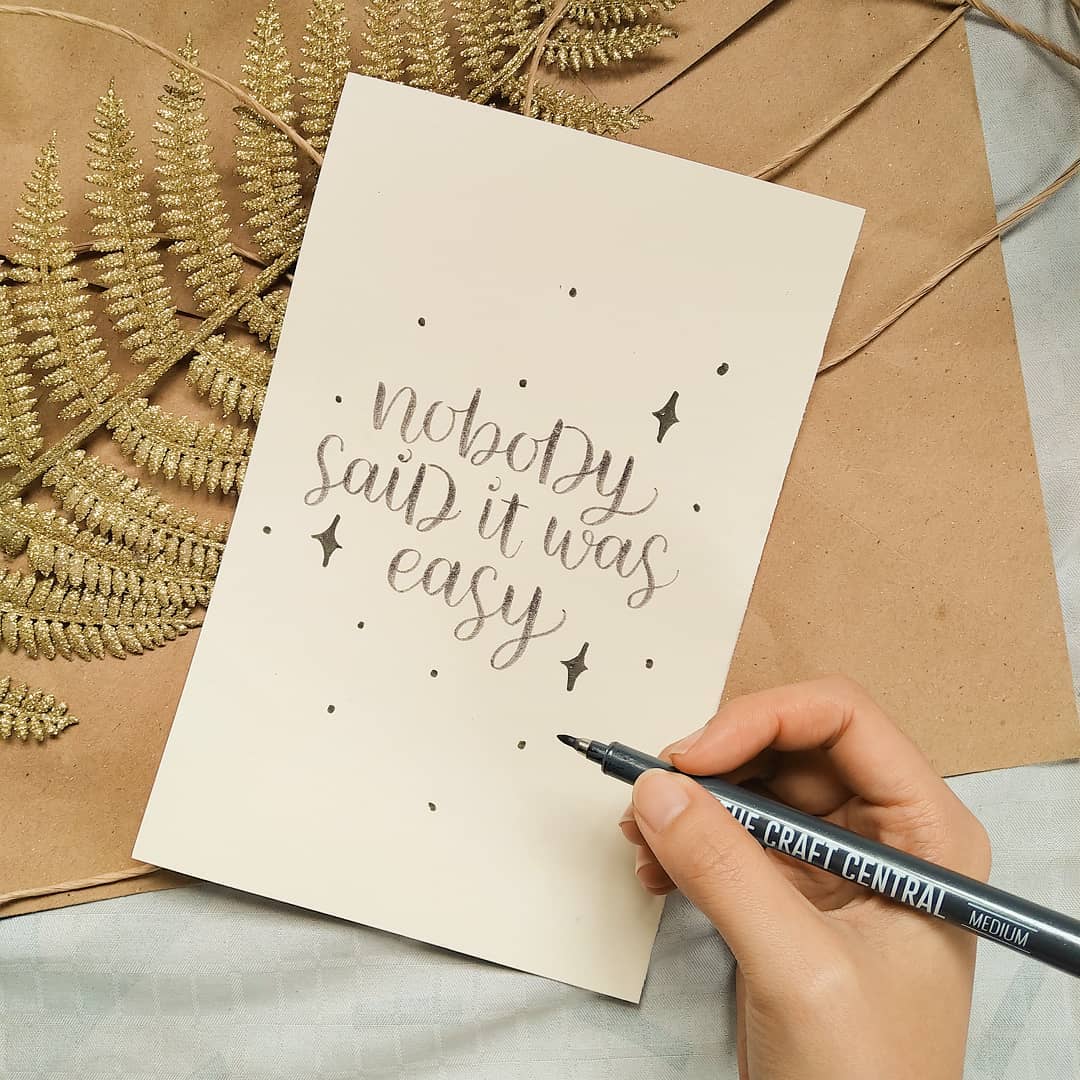 nobody
said it was
easy
THE CRAFT CENTRAL
MEDIUM